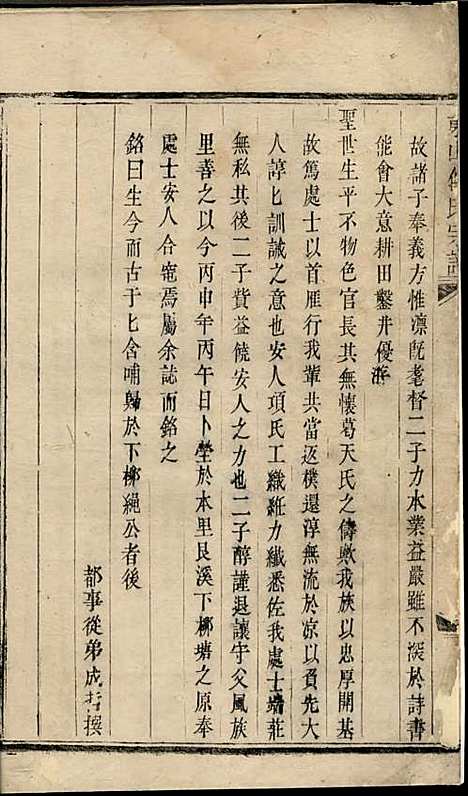 故諸子奉義方惟凛旣耄督二子力本業益嚴雖不深於詩書
能會大意耕田鑿井優游
聖世生平不物色官長其無懷葛天氏之儔歟我族以忠厚開基
故篤處士以首雁行我輩共當返樸還淳無流於凉以負先大
人諄匕訓誡之意也安人項氏工織紝力纖悉佐我處士端莊
無私其後二子貲益饒安人之力也二子醇謹退讓守父風族
里善之以今丙申年丙午日卜塋於本里艮溪下梛塘之原奉
處士安人合窀焉屬余誌而銘之
銘曰生今而古于匕含哺歸於下梛繩公者後
都事從弟成哲撰
氏宗譜